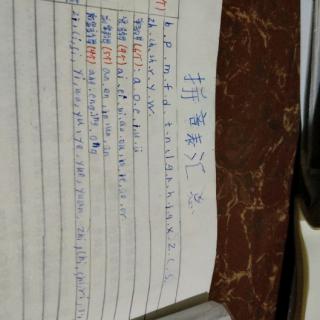 拼音表汇总
个) b、p、m、f、d、t、n、l、g、k、h、j、q、x、z、c、s、
zh、ch、sh、r、y、w
单韵母(6个): a o e i u ü
复韵母(9个) ai、ei、ui、ao、ou、iu、ie、üe、er
前鼻韵母(5个) an、en、in、un、ün
后鼻韵母(4个) ang、eng、ing、ong
zi、ci、si、yi、wu、yu、ye、yue、yuan、zhi、chi、shi、ri